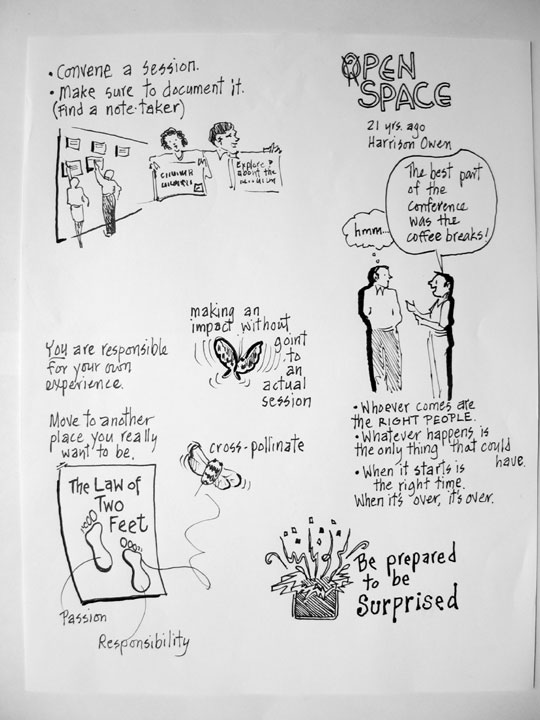 • Convene a session.
• Make sure to document it.
(Find a note-taker)
Explore
about the
OPEN
SPACE
21 yrs. ago
Harrison Owen
The best part
of the
conference
was the
coffee breaks!
hmm...
making an
impact without
goint
to
an
actual
session
You are responsible
for your own
experience.
Move to another
place you really
want to be.
cross-pollinate
The Law of
Two
Feet
Passion
Responsibility
• Whoever comes are
the RIGHT PEOPLE.
• Whatever happens is
the only thing that could
have.
• When it starts is
the right time.
When it's over, it's over.
Be prepared
to be
Surprised